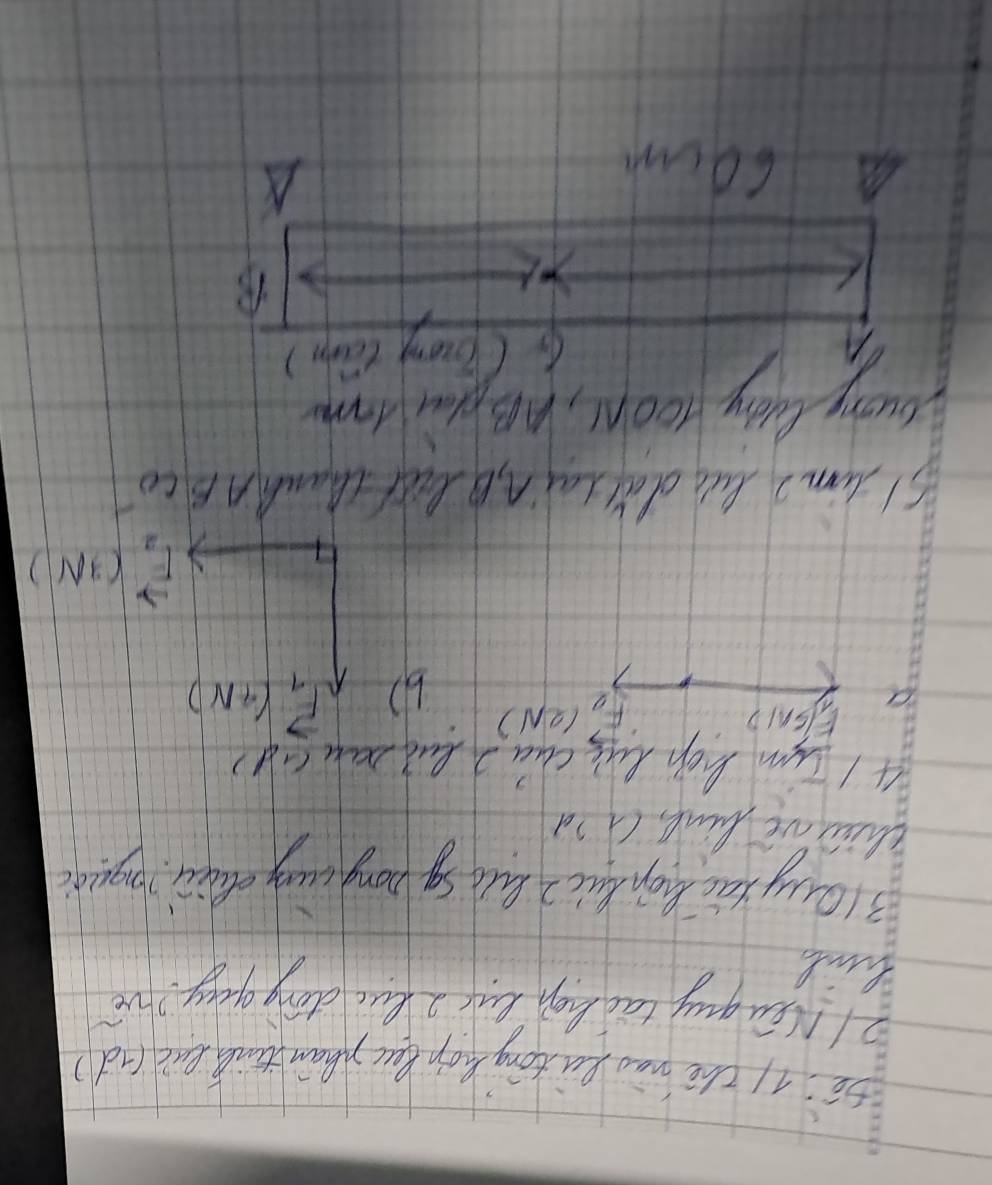 Đề: 1) Thế nào là tổng hợp lực phân tích lực (1đ)
2) Nêu quy tắc hợp lực 2 lực đồng quy? vẽ
hình
3) Quy tắc hợp lực 2 lực sg song cùng chiều? ngược
chiều vẽ hình (1?đ
4) Tìm hợp lực của 2 lực sau (1đ)
a
F₁ (5N)
F₂ (2N)
b)
F₁ (4N)
F₂ (3N)
5) Tìm 2 lực đặt tại A, B biết thanh AB có
trọng lượng 100N, AB dài 1m
A
G (trọng tâm)
B
60 cm